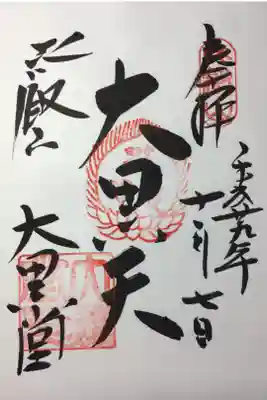 奉拝
平成廿九年
十一月七日
大黒天
比叡山
大黒堂